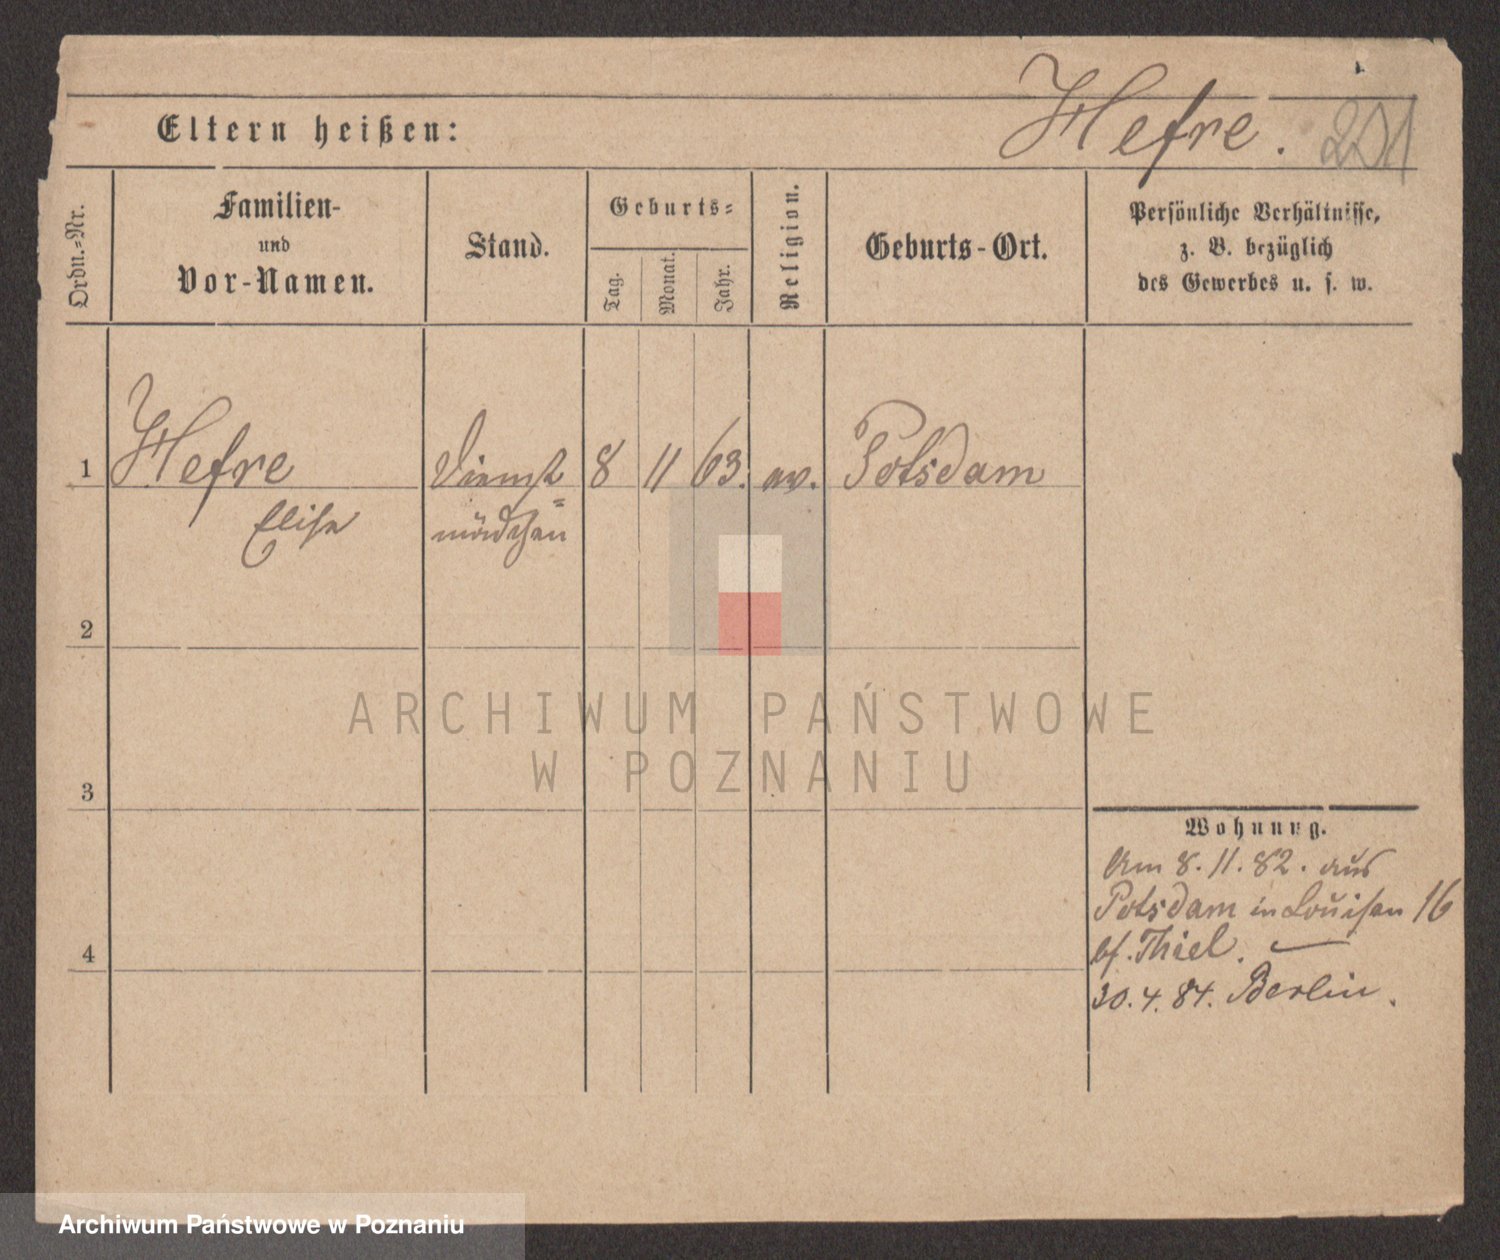 Hefre. 201
Eltern heißen:
Ordn.=Nr.
Familien-
und
Vor-Namen.
Stand.
Geburts=
Tag.
Monat.
Jahr.
Religion.
Geburts-Ort.
Persönliche Verhältnisse,
z. B. bezüglich
des Gewerbes u. s. w.
1 Hefre Dienst 8 11 63. ev. Potsdam
Elise =mädchen
2
ARCHIWUM PAŃSTWOWE
W POZNANIU
3
Wohnung.
Am 8.11.82. aus
Potsdam in Louisen 16
bf. Thiel. —
4
30.4.84. Berlin.
Archiwum Państwowe w Poznaniu